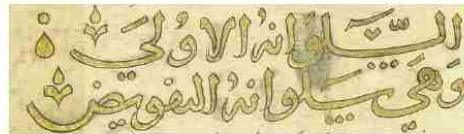 السلوانة الاولى
وهي سلوانة التفويض